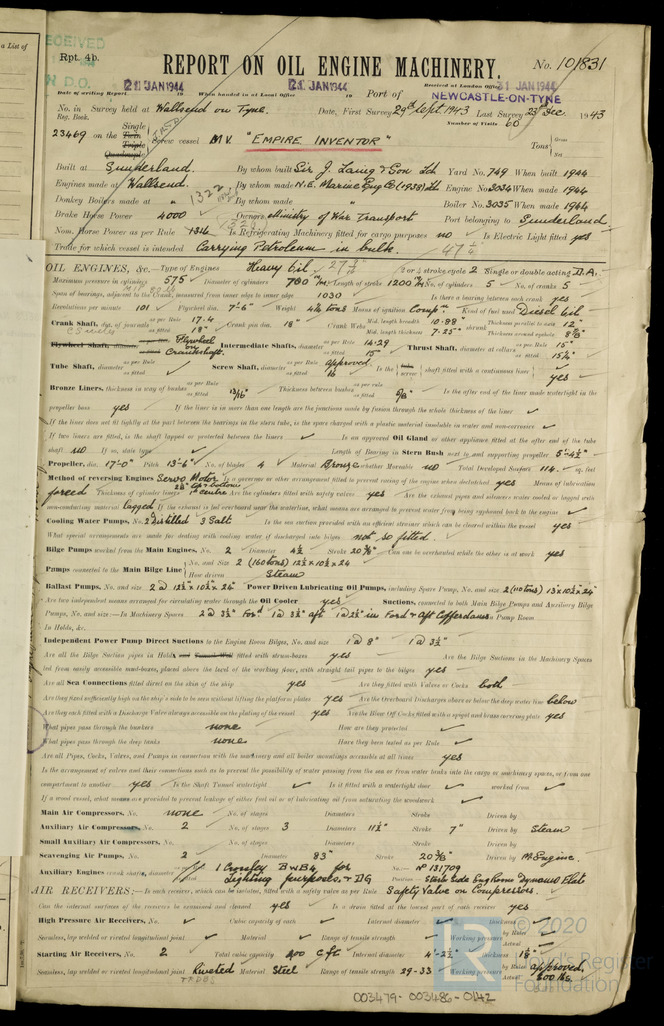 a List of
RECEIVED
D.O.
Rpt. 4b.
REPORT ON OIL ENGINE MACHINERY.
No. 101831
21 JAN 1944
JAN 1944
31 JAN 1944
Date of writing Report
When handed in at Local Office
Received at London Office
Port of NEWCASTLE-ON-TYNE
No. in Survey held at Wallsend on Tyne.
Date, First Survey 29th Sept 1943 Last Survey 23rd Dec. 1943
Reg. Book.
Number of Visits 60
23469 on the Single Twin Triple Quadruple Screw vessel M.V. "EMPIRE INVENTOR"
Tons Gross Net
Built at Sunderland. By whom built Sir J. Laing & Son Ltd Yard No. 749 When built 1944
Engines made at Wallsend. By whom made N.E. Marine Eng Co (1938) Ltd Engine No. 3034 When made 1944
Donkey Boilers made at " By whom made " Boiler No. 3035 When made 1944
Brake Horse Power 4000 Owners Ministry of War Transport Port belonging to Sunderland
Nom. Horse Power as per Rule 1314 Is Refrigerating Machinery fitted for cargo purposes no Is Electric Light fitted yes
Trade for which vessel is intended Carrying Petroleum in bulk.
OIL ENGINES, &c.—Type of Engines Heavy Oil 2 or 4 stroke cycle 2 Single or double acting D.A.
Maximum pressure in cylinders 575 Diameter of cylinders 700 m/m Length of stroke 1200 m/m No. of cylinders 5 No. of cranks 5
Span of bearings, adjacent to the Crank, measured from inner edge to inner edge 1030 Is there a bearing between each crank yes
Revolutions per minute 101 Flywheel dia. 7'-6" Weight 4½ tons Means of ignition Compn. Kind of fuel used Diesel Oil
Crank Shaft, dia. of journals as per Rule 17.4 as fitted 18" Crank pin dia. 18" Crank Webs Mid. length breadth 10.88" Mid. length thickness 7.25" Thickness parallel to axis 12" Thickness around eyehole 8⅝"
Flywheel Shaft, Flywheel on Crankshaft. Intermediate Shafts, diameter as per Rule 14.29 as fitted 15" Thrust Shaft, diameter at collars as per Rule 15" as fitted 15¼"
Tube Shaft, diameter as per Rule as fitted Screw Shaft, diameter as per Rule approved as fitted 16 Is the tube screw shaft fitted with a continuous liner yes
Bronze Liners, thickness in way of bushes as per Rule as fitted 13/16" Thickness between bushes as per rule as fitted Is the after end of the liner made watertight in the
propeller boss yes If the liner is in more than one length are the junctions made by fusion through the whole thickness of the liner
If the liner does not fit tightly at the part between the bearings in the stern tube, is the space charged with a plastic material insoluble in water and non-corrosive
If two liners are fitted, is the shaft lapped or protected between the liners Is an approved Oil Gland or other appliance fitted at the after end of the tube
shaft no If so, state type Length of Bearing in Stern Bush next to and supporting propeller 5'-4½"
Propeller, dia. 17'-0" Pitch 13'-6" No. of blades 4 Material Bronze whether Moveable no Total Developed Surface 114 sq. feet
Method of reversing Engines Servo Motor Is a governor or other arrangement fitted to prevent racing of the engine when declutched yes Means of lubrication
forced Thickness of cylinder liners Are the cylinders fitted with safety valves yes Are the exhaust pipes and silencers water cooled or lagged with
non-conducting material lagged If the exhaust is led overboard near the waterline, what means are arranged to prevent water from being syphoned back to the engine
Cooling Water Pumps, No. 2 Distilled 3 Salt Is the sea suction provided with an efficient strainer which can be cleared within the vessel yes
What special arrangements are made for dealing with cooling water if discharged into bilges not so fitted.
Bilge Pumps worked from the Main Engines, No. 2 Diameter 4½ Stroke 20⅞" Can one be overhauled while the other is at work yes
Pumps connected to the Main Bilge Line No. and Size 2 (160 tons) 12½ x 10½ x 24
How driven Steam
Ballast Pumps, No. and size 2 @ 12½" x 10½" x 24" Power Driven Lubricating Oil Pumps, including Spare Pump, No. and size 2 (110 tons) 13 x 10½ x 24"
Are two independent means arranged for circulating water through the Oil Cooler yes Suctions, connected to both Main Bilge Pumps and Auxiliary Bilge
Pumps, No. and size:—In Machinery Spaces 2 @ 3½" Ford 1 @ 3½" aft 1 @ 2½" in Ford & Aft Cofferdams In Pump Room
In Holds, &c.
Independent Power Pump Direct Suctions to the Engine Room Bilges, No. and size 1 @ 8" 1 @ 3½"
Are all the Bilge Suction pipes in Holds and Tunnel Well fitted with strum-boxes yes Are the Bilge Suctions in the Machinery Spaces
led from easily accessible mud-boxes, placed above the level of the working floor, with straight tail pipes to the bilges yes
Are all Sea Connections fitted direct on the skin of the ship yes Are they fitted with Valves or Cocks both
Are they fixed sufficiently high on the ship's side to be seen without lifting the platform plates yes Are the Overboard Discharges above or below the deep water line below
Are they each fitted with a Discharge Valve always accessible on the plating of the vessel yes Are the Blow Off Cocks fitted with a spigot and brass covering plate yes
What pipes pass through the bunkers none How are they protected
What pipes pass through the deep tanks none Have they been tested as per Rule
Are all Pipes, Cocks, Valves, and Pumps in connection with the machinery and all boiler mountings accessible at all times yes
Is the arrangement of valves and their connections such as to prevent the possibility of water passing from the sea or from water tanks into the cargo or machinery spaces, or from one
compartment to another yes Is the Shaft Tunnel watertight Is it fitted with a watertight door worked from
If a wood vessel, what means are provided to prevent leakage of either fuel oil or of lubricating oil from saturating the woodwork
Main Air Compressors, No. none No. of stages Diameters Stroke Driven by
Auxiliary Air Compressors, No. 2 No. of stages 3 Diameters 11½" Stroke 7" Driven by Steam
Small Auxiliary Air Compressors, No. No. of stages Diameters Stroke Driven by
Scavenging Air Pumps, No. 2 Diameter 83" Stroke 20⅞" Driven by M. Engine.
Auxiliary Engines crank shafts, diameter 1 Crossley BWB4 for No. No 131709
Lighting purposes, & DG Position Starb side Eng Room Dynamo Flat
AIR RECEIVERS:—Is each receiver, which can be isolated, fitted with a safety valve as per Rule Safety Valve on Compressors.
Can the internal surfaces of the receivers be examined and cleaned yes Is a drain fitted at the lowest part of each receiver yes
High Pressure Air Receivers, No. Cubic capacity of each Internal diameter thickness
Seamless, lap welded or riveted longitudinal joint Material Range of tensile strength Working pressure by Rules Actual
Starting Air Receivers, No. 2 Total cubic capacity 900 c ft Internal diameter 4'-2½" thickness 1⅛"
Seamless, lap welded or riveted longitudinal joint Riveted Material Steel Range of tensile strength 29-33 Working pressure by Rules approved. Actual 600 lbs.
© 2020
LR
Lloyd's Register
Foundation
003479-003486-0142